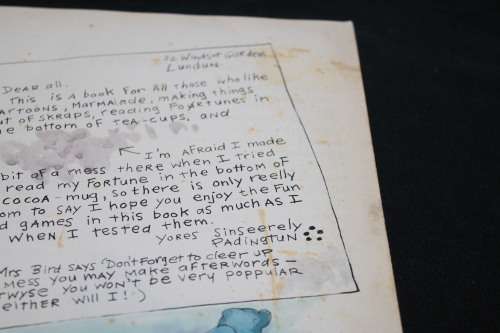 32 Windsor Gardens
Lundun.
Dear all.
This is a book for all those who like
artoons, Marmalade, making things
ut of skraps, reading Fortunes in
e bottom of tea-cups, and
I'm afraid I made
bit of a mess there when I tried
read my fortune in the bottom of
cocoa-mug, so there is only reelly
om to say I hope you enjoy the fun
d games in this book as much as I
when I tested them.
Yores Sinseerely
Padingtun
Mrs Bird says 'Don't forget to cleer up
mess you may make afterwords -
rwyse you won't be very poppular
either will I!')